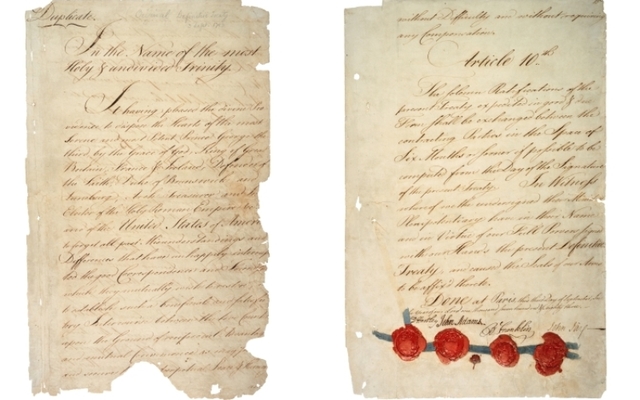 Duplicate.
In the Name of the most
Holy & undivided Trinity.
It having pleased the divine Pro
vidence to dispose the Hearts of the most
Serene and most Potent Prince George the
third, by the Grace of God, King of Great
Britain, France & Ireland, Defender of
the Faith, Duke of Brunswick and
Lunebourg, Arch Treasurer and
Elector of the Holy Roman Empire
and of the United States of America
to forget all past Misunderstandings and
Differences that have unhappily interrup
ted the good Correspondence and Friendship
which they mutually wish to
to establish such a beneficial and satisfactory
Intercourse between the two Countries
upon the Ground of reciprocal
and mutual Convenience as may
and secure
without Difficulty and without requiring
any Compensation.
Article 10th.
The solemn Ratifications of the
present Treaty expedited in good & due
Form shall be exchanged between the
contracting Parties in the Space of
Six Months or sooner if possible to be
computed from the Day of the Signature
of the present Treaty. In Witness
whereof we the undersigned their Minis
Plenipotentiary have in their Name
and in Virtue of our Full Powers signed
with our Hands the present Definitive
Treaty, and caused the Seals of our Arms
to be affixed thereto.
Done at Paris, this third Day of September
John Adams
B Franklin
John Jay